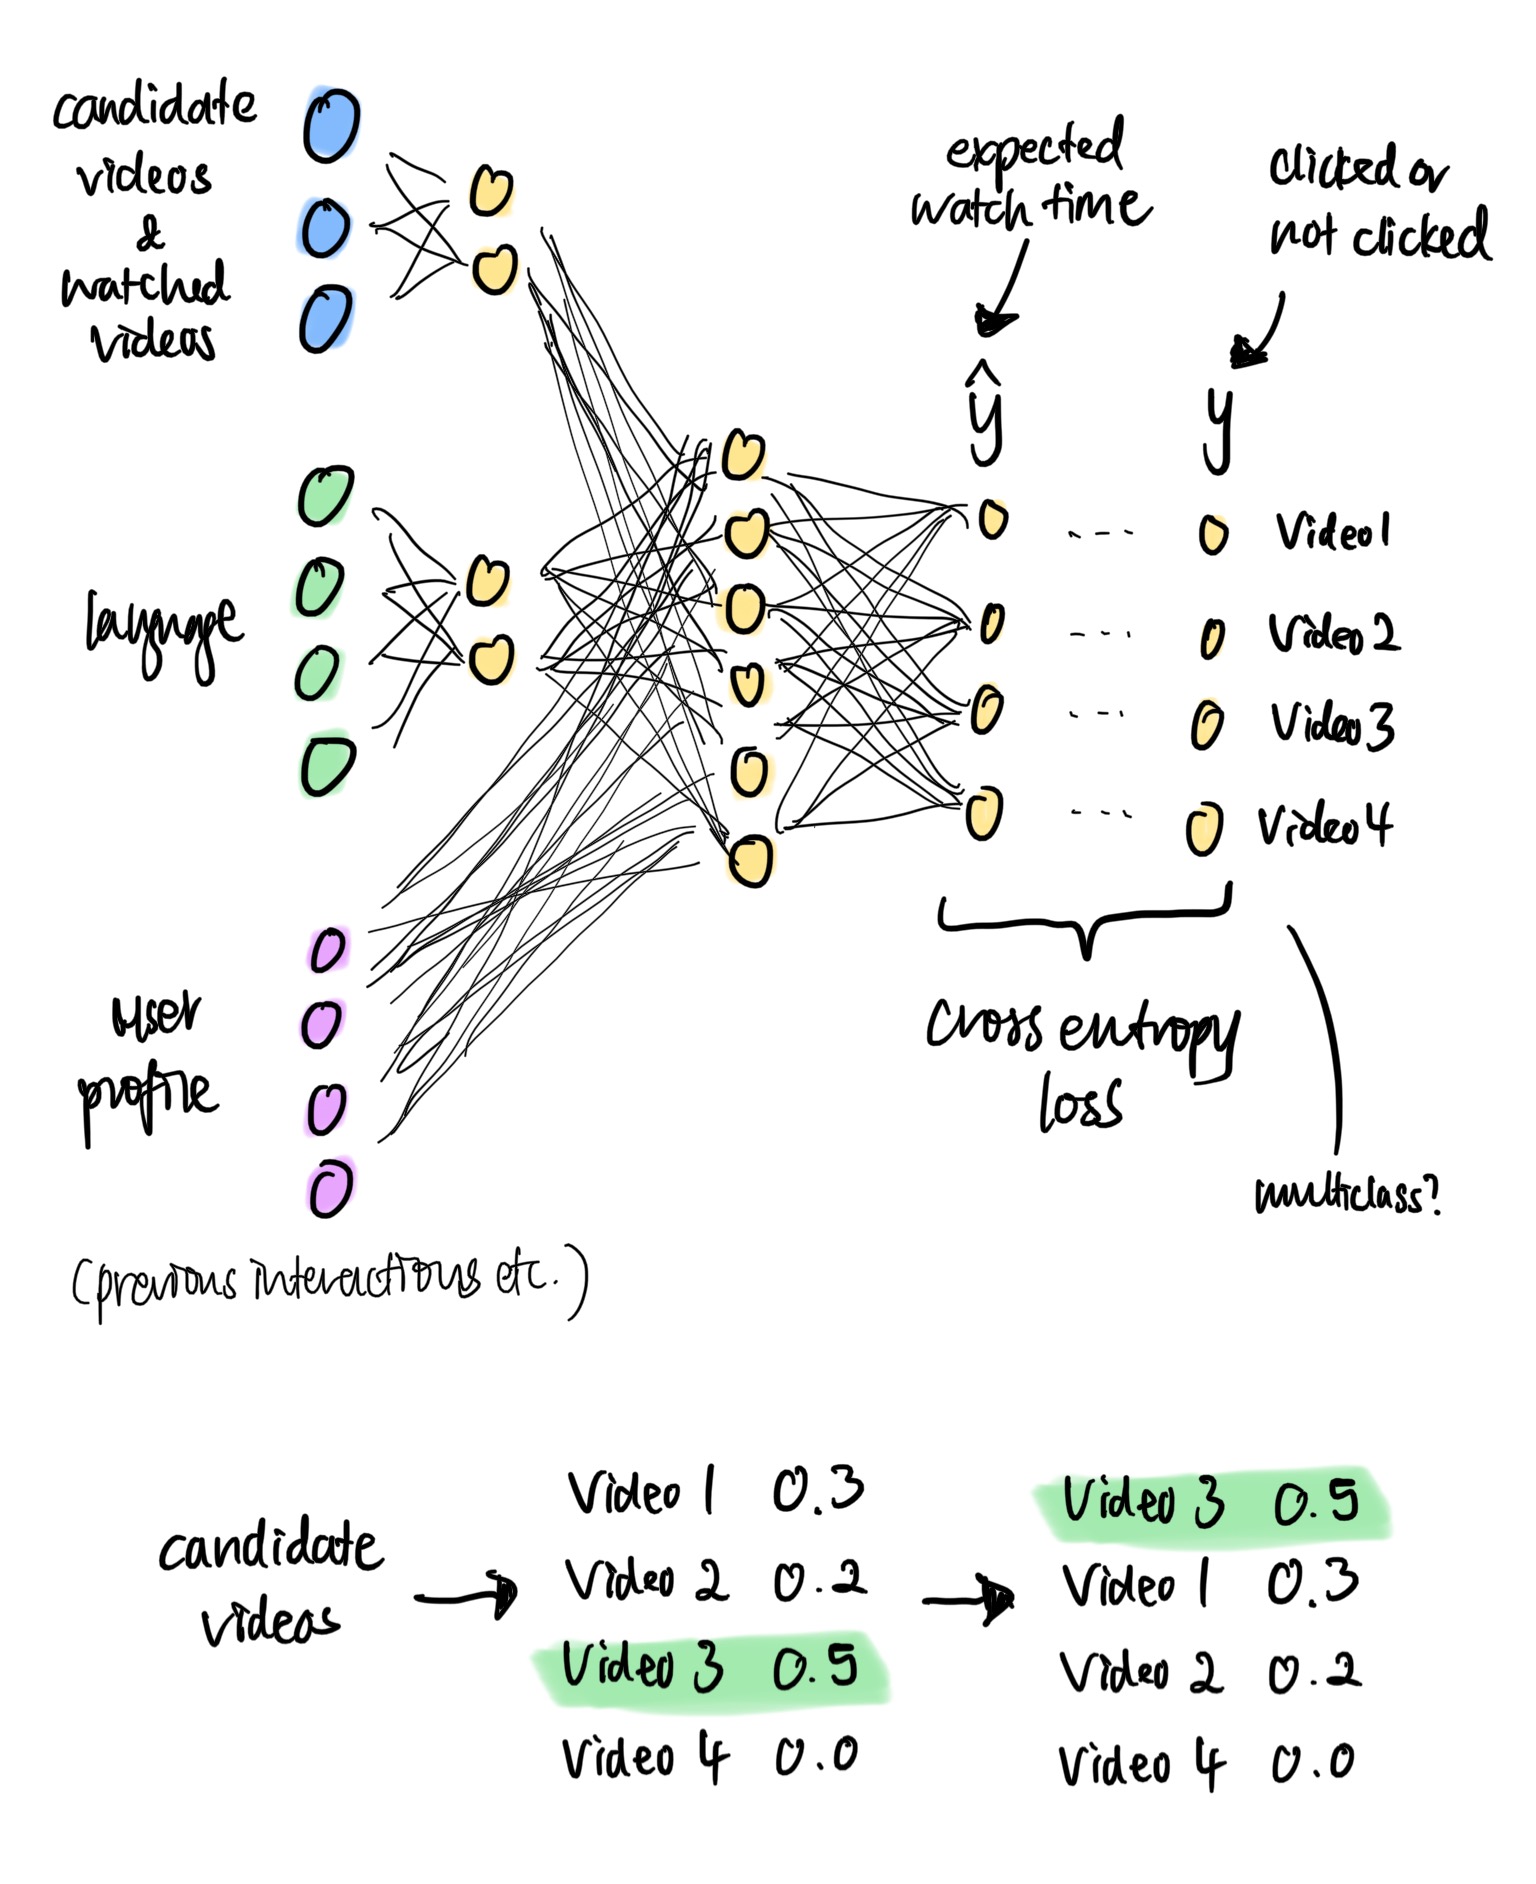 candidate
videos
&
watched
videos
language
user
profile
(previous interactions etc.)
expected
watch time
ŷ
clicked or
not clicked
y
Video 1
Video 2
Video 3
Video 4
cross entropy
loss
multiclass?
candidate
videos
Video 1 0.3
Video 2 0.2
Video 3 0.5
Video 4 0.0
Video 3 0.5
Video 1 0.3
Video 2 0.2
Video 4 0.0